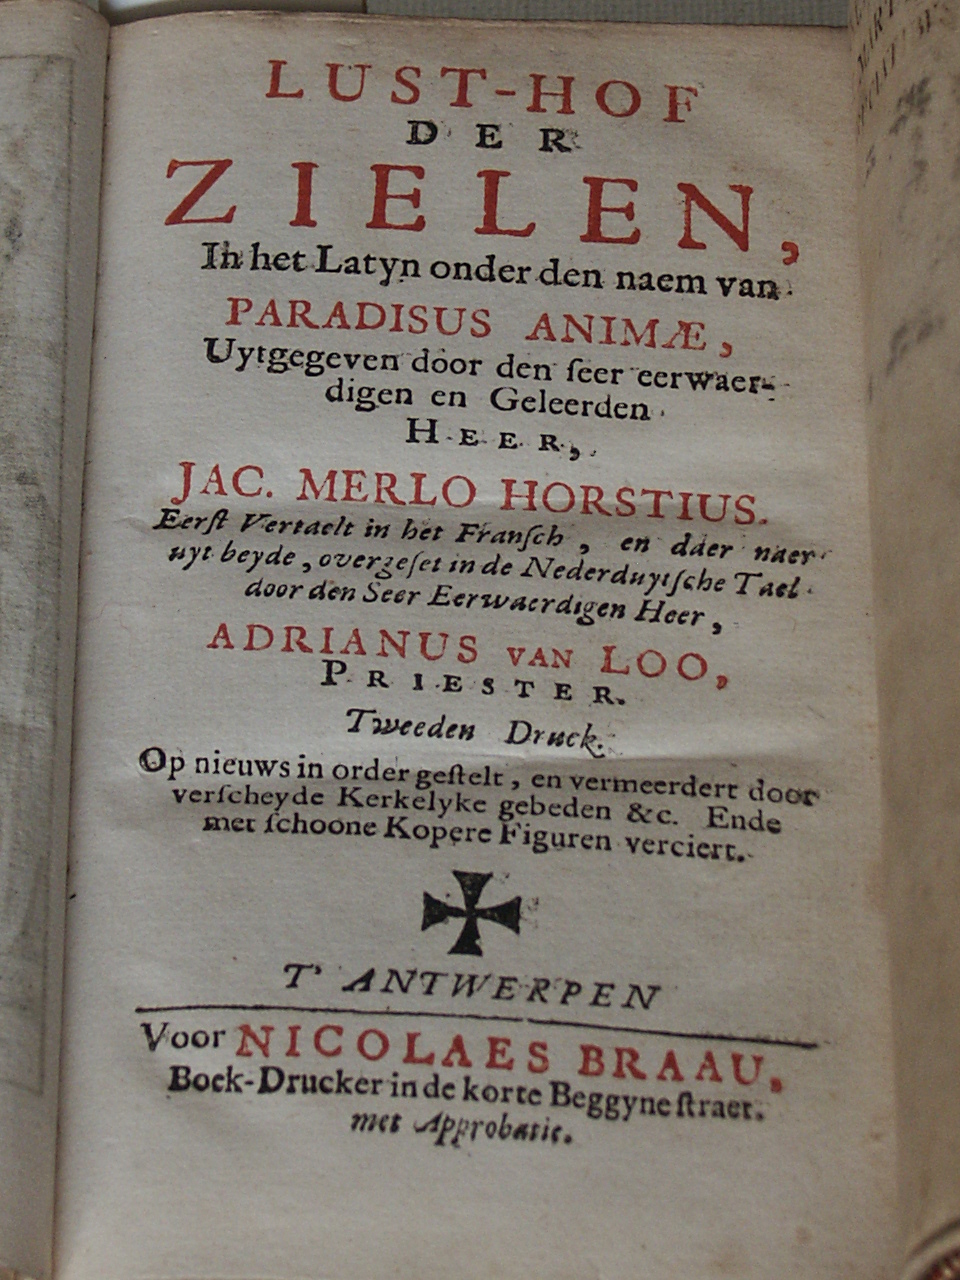 LUST-HOF
DER
ZIELEN,
In het Latyn onder den naem van
PARADISUS ANIMÆ,
Uytgegeven door den ſeer eerwaer-
digen en Geleerden
HEER,
JAC. MERLO HORSTIUS.
Eerſt Vertaelt in het Franſch, en daer naer
uyt beyde, overgeſet in de Nederduytſche Tael
door den Seer Eerwaerdigen Heer,
ADRIANUS VAN LOO,
PRIESTER.
Tweeden Druck.
Op nieuws in order geſtelt, en vermeerdert door
verſcheyde Kerkelyke gebeden &c. Ende
met ſchoone Kopere Figuren verciert.
T' ANTWERPEN
Voor NICOLAES BRAAU,
Boek-Drucker in de korte Beggyne ſtraet.
met Approbatie.